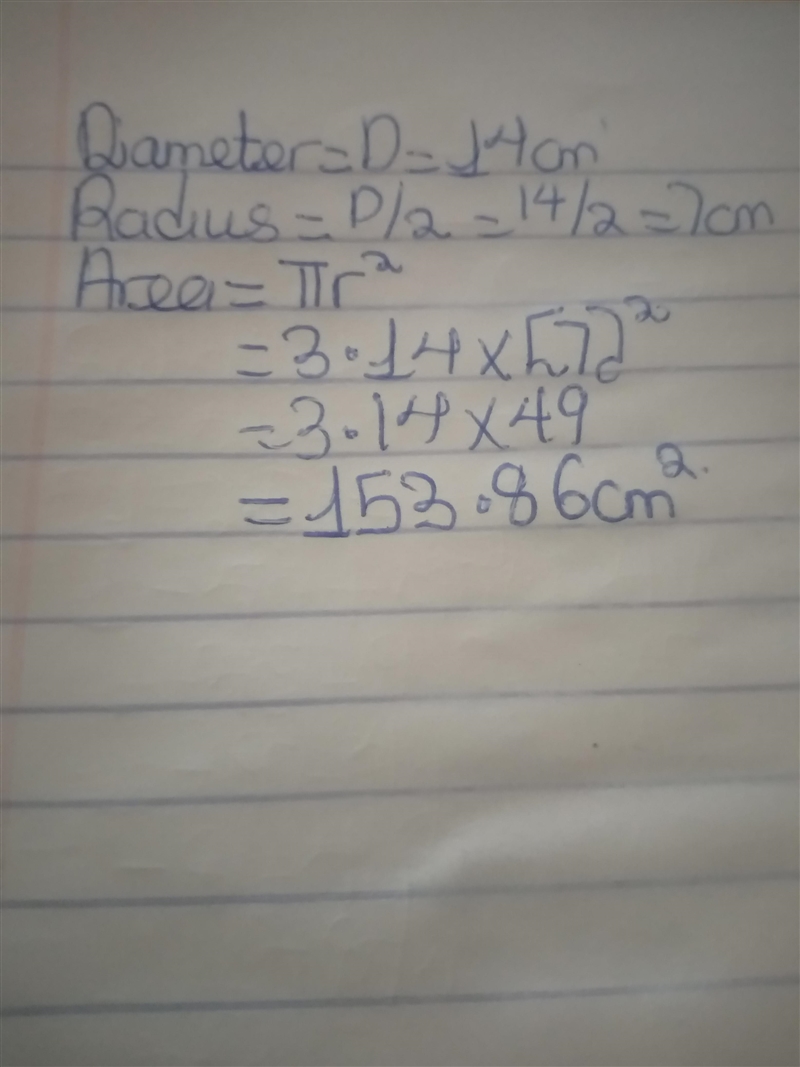 Diameter = D = 14cm
Radius = D/2 = 14/2 = 7cm
Area = πr²
= 3.14 × [7]²
= 3.14 × 49
= 153.86cm².